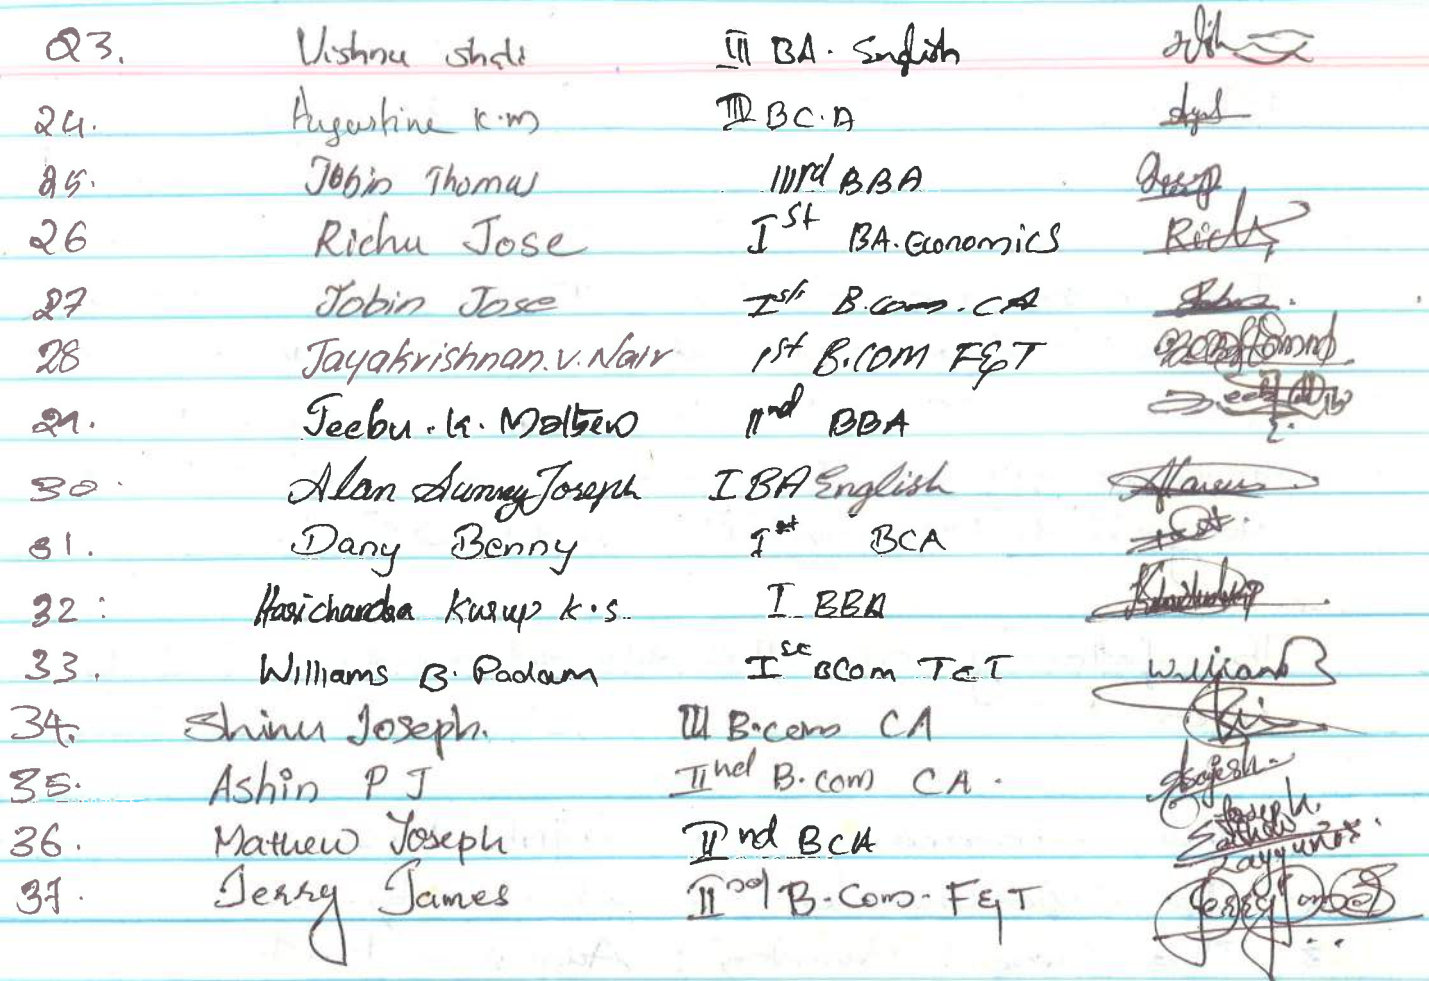 23. Vishnu Shaji III BA. English
24. Augustine K.M III BC.A
25. Jobin Thomas IIIrd BBA
26 Richu Jose Ist BA. Economics Richu
27 Jobin Jose Ist B.com. CA
28 Jayakrishnan.V.Nair 1st B.COM F&T
29. Jeebu. K. Mathew IInd BBA
30 Alan Sunny Joseph I BA English
31. Dany Benny Ist BCA
32 : Harichandra Kurup K.S. I BBA
33. Williams B. Padam Ist BCom T&T Williams
34. Shinu Joseph. III B.com CA
35. Ashin P J IInd B.com CA.
36. Mathew Joseph IInd BCA
37. Jerry James IInd B.Com. F&T Jerry James